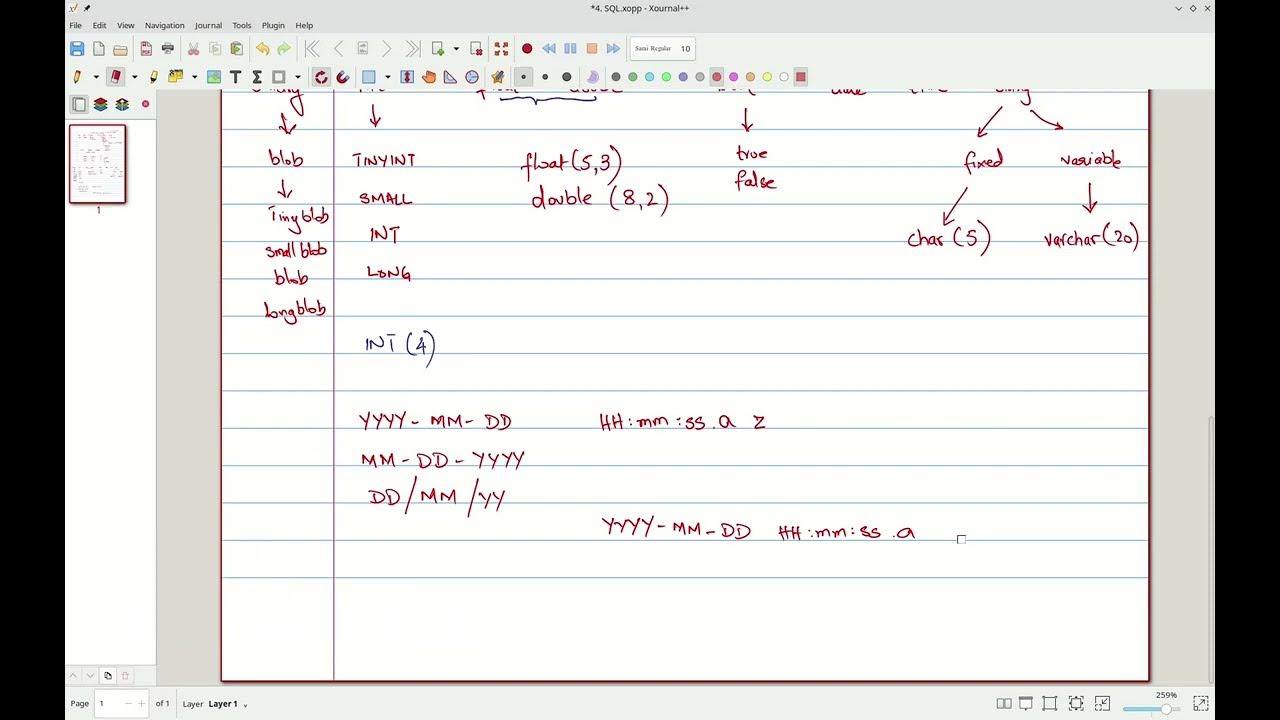 *4. SQL.xopp - Xournal++
File Edit View Navigation Journal Tools Plugin Help
Sans Regular 10
blob TINYINT float(5,3) true fixed variable
false
SMALL double (8,2)
Tinyblob
INT char(5) varchar(20)
smallblob
blob LONG
longblob
INT (4)
YYYY - MM - DD HH:mm:ss.a z
MM - DD - YYYY
DD/MM/YY
YYYY - MM - DD HH:mm:ss.a
1
Page 1 of 1 Layer Layer 1 259%